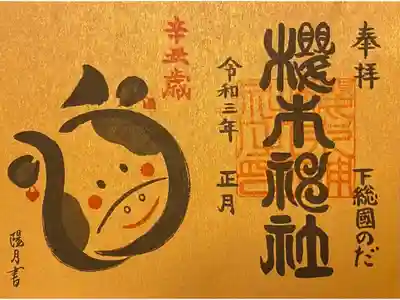 奉拝
下総國のだ
櫻木神社
令和三年 正月
辛丑歳
陽月書